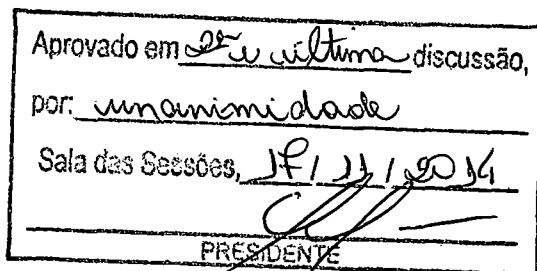 Aprovado em 2ª e última discussão,
por: unanimidade
Sala das Sessões, 17/11/2014
PRESIDENTE